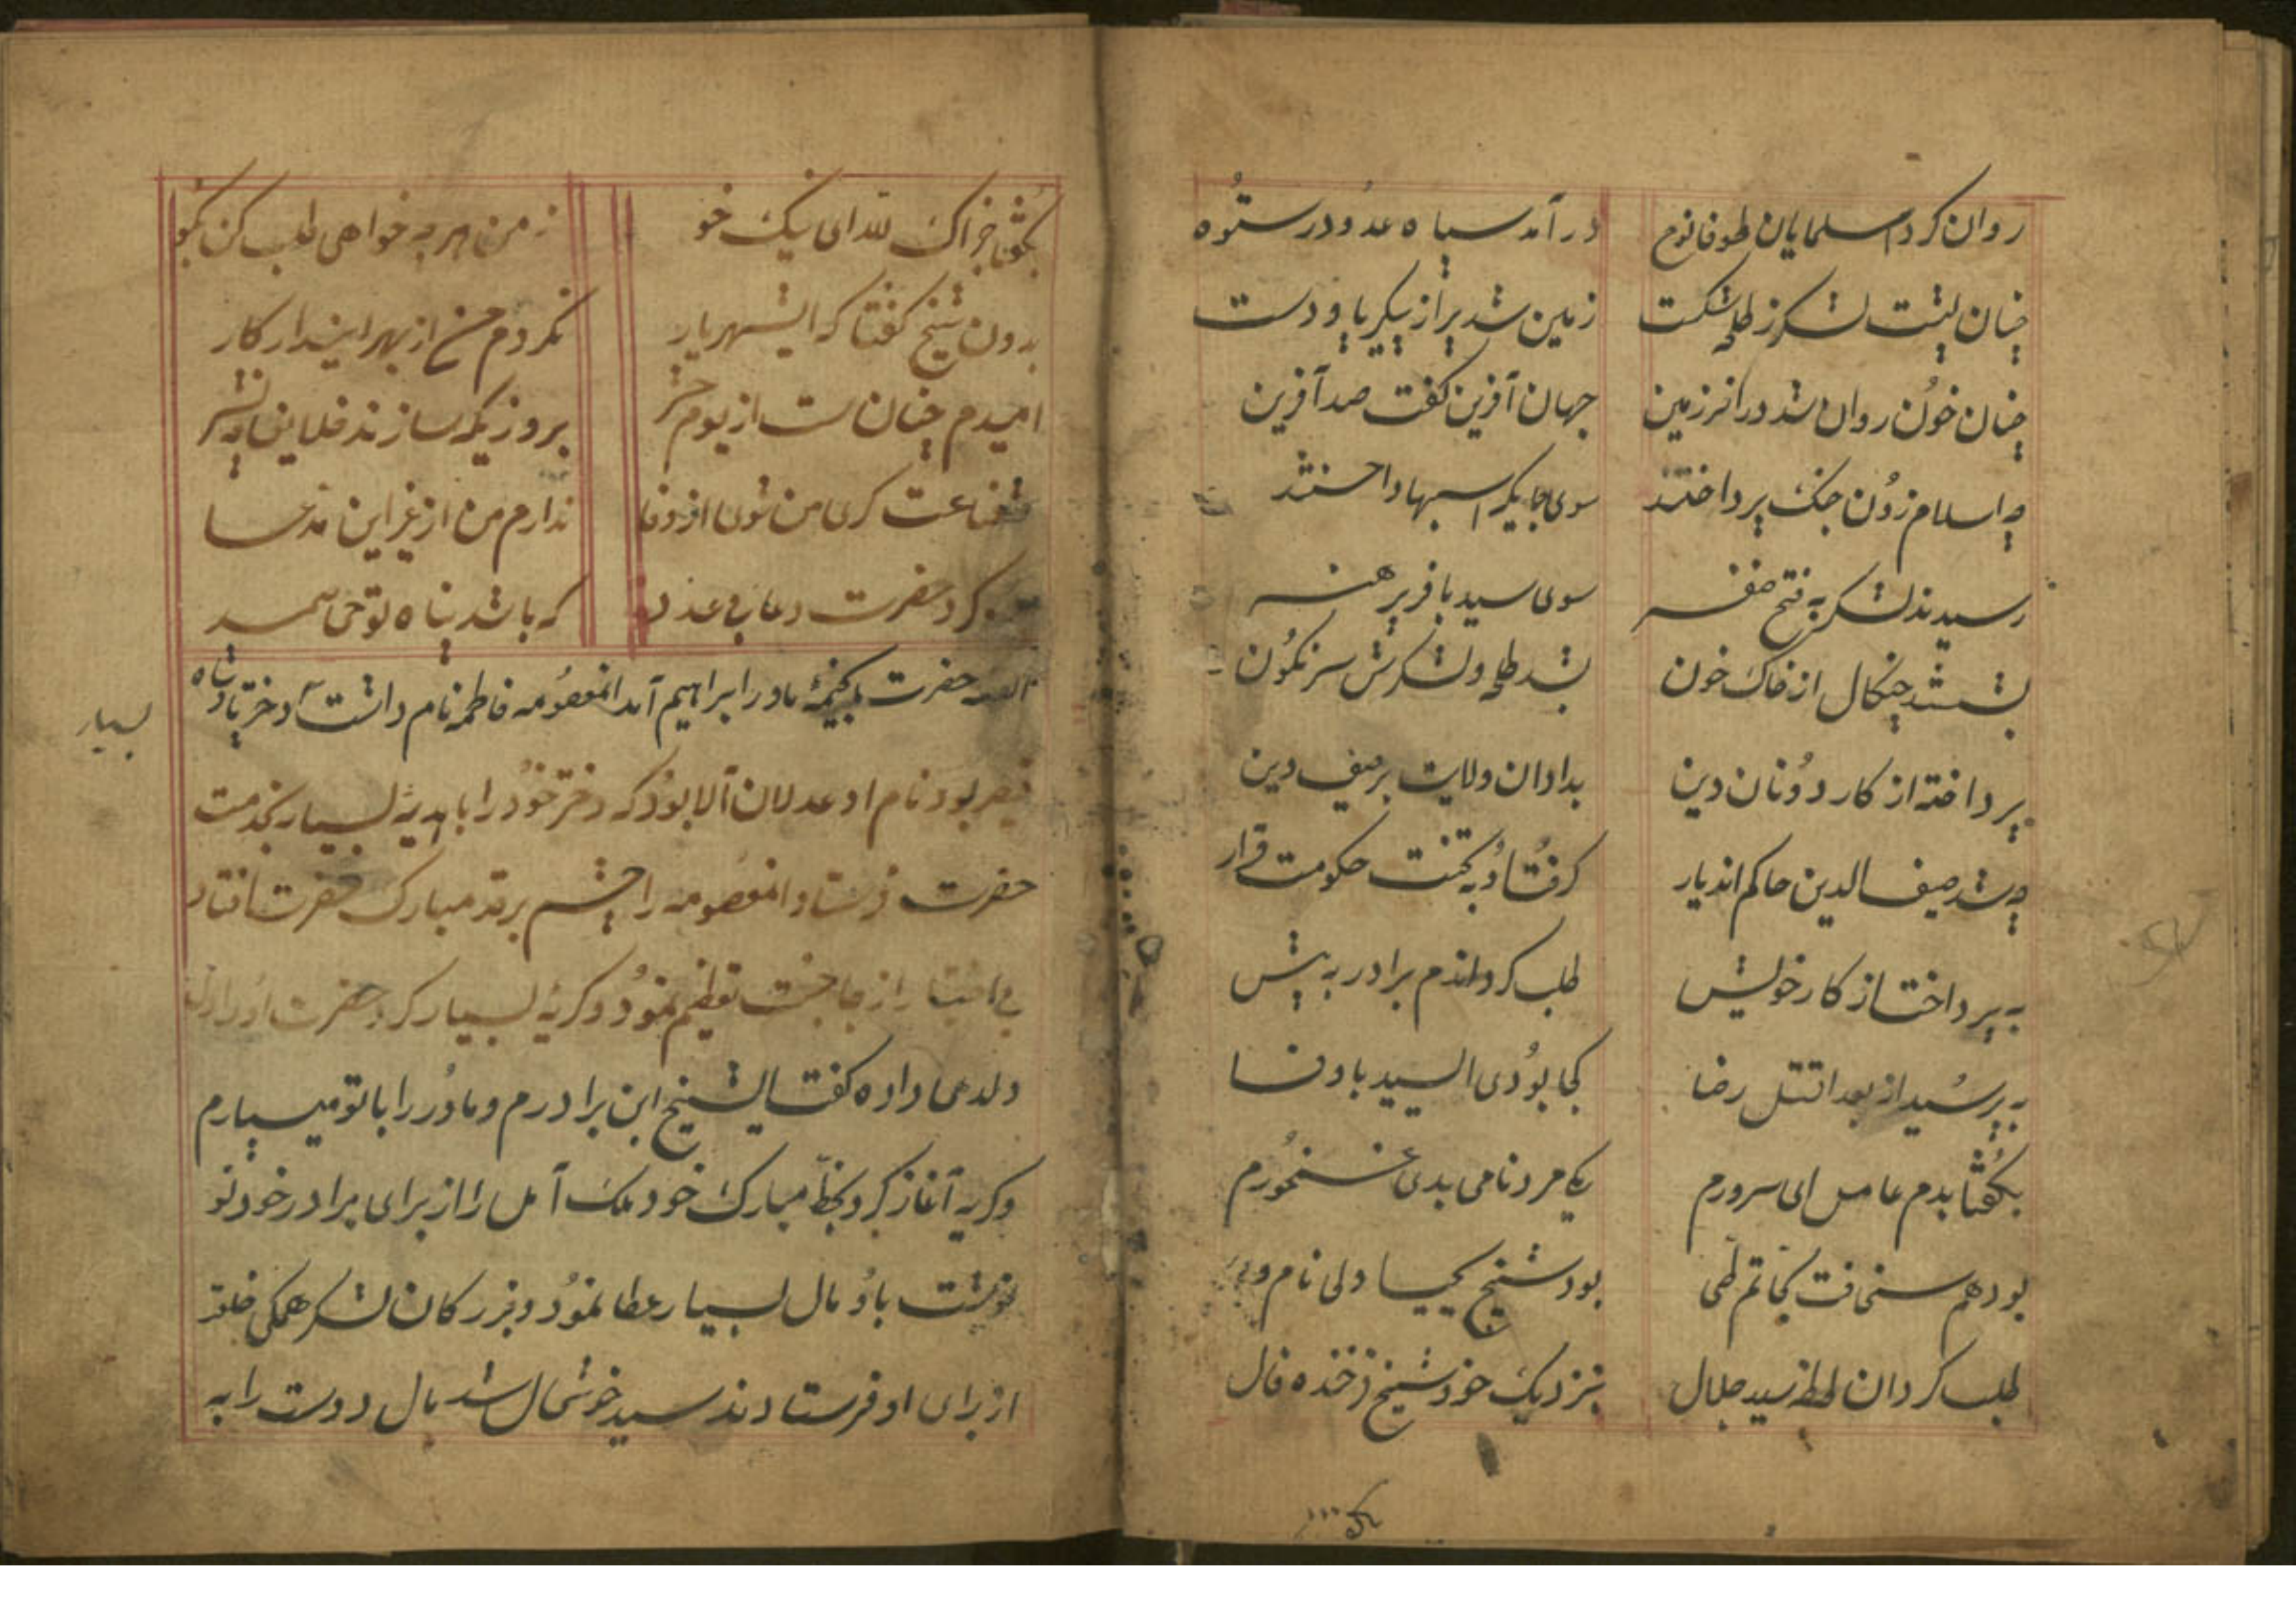 روان کرد اسلمایان طوفانوم در آمد سپاه عدو در ستوه
چنان پشت لشکر ز طلحه شکست زمین شد پر از پیکر پا و دست
چنان خون روان شد در انرزمین جهان آفرین گفت صد آفرین
چه اسلام زون جنک پرداختند سوی جایکه اسبها داختند
رسیدند لشکر به فتح ضفر سوی سید با فر پر هنر
بشستند چنکال از خاک خون بشد طلحه و لشکرش سرنکون
پرداخته از کار دونان دین بداد ان ولایت بر صیف دین
چه شد صیف الدین حاکم اندیار کرفتا و به تخت حکومت قرار
به پرداخت از کار خویش طلب کرد اندم برادر به پیش
به پرسید از بعد اقتل رضا کجا بودی السید باوفا
بکفتا بدم عامل ای سرورم یکی مرد نامی بدی غمخورم
بود هم سخافت کجاتم طی بود شیخ یحییا ولی نام وی
طلب کرد ان لحظه سید جلال بنزدیک خود شیخ فرخنده فال
بکفتا جزاک لله ای نیک خو ز من هر چه خواهی طلب کن بکو
بدون شیخ کفتا که ایشهریار نکردم من از بهر ایندار کار
امیدم چنان است از یوم حشر بروزیکه سازند خلایق به نشر
شفاعت کری من شوی از وفا ندارم من از غیر این مدعا
کرد حضرت دعا بی عدد که باشد پناه تو حی صمد
القصه حضرت بخیمهٔ مادر ابراهیم آمد انمعصومه فاطمه نام داشت آ دختر پادشاه
بسیار
قیصر بود نام او عدلان آلا بود که دختر خود را با هدیهٔ بسیار بخدمت
حضرت فرستاد انمعصومه را چشم بر قد مبارک حضرت افتاد
بی اختیار از جا جست تعظیم نمود و کریهٔ بسیار کرد حضرت او را دل
دلدهی داده کفت ایشیخ این برادرم و مادر را با تو میسپارم
و کریه آغاز کرد بخط مبارک خود ملک آمل را از برای برادر خود نو
نوشت باو مال بسیار عطا نمود و بزرکان لشکر همکی خلعت
از برای او فرستادند سید خوشحال شد بال دوست را به